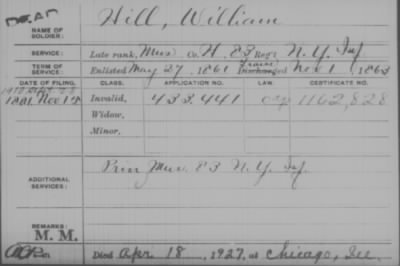 DEAD
Hill, William
NAME OF SOLDIER:
SERVICE: Late rank, Mus, Co. H, 83 Reg't N.Y. Inf
TERM OF SERVICE: Enlisted May 27, 1861 Discharged Nov 1, 1863
DATE OF FILING. CLASS. APPLICATION NO. LAW. CERTIFICATE NO.
1881 Nov 12 Invalid, 433.441 1162,828
Widow,
Minor,
ADDITIONAL SERVICES: Prin Mus. 83 N.Y. Inf.
REMARKS:
M. M.
Died Apr 18, 1927, at Chicago, Ill.